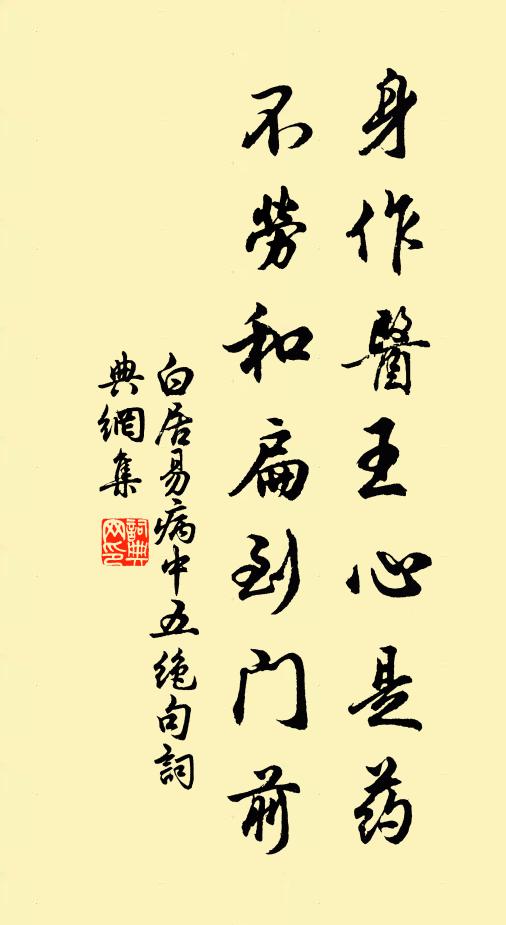 身作醫王心是药
不勞和扁到门前
白居易病中五绝句詞
典網集
詞典网印